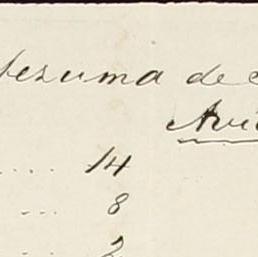 tezuma de
Avi
.... 14
... 8
... 2